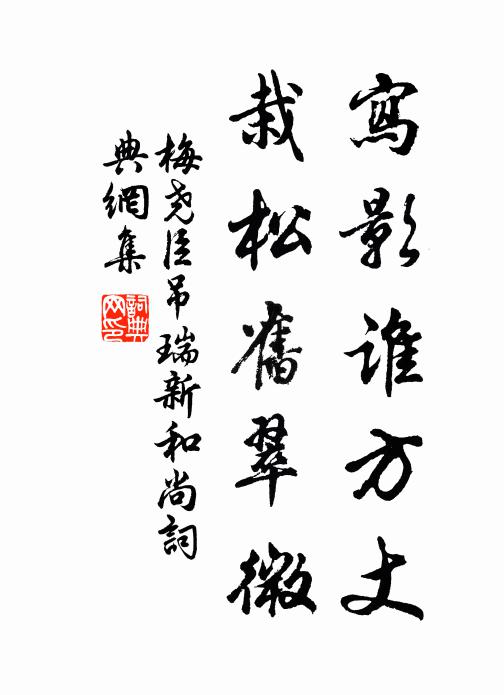 寫影誰方丈
栽松舊翠微
梅堯臣吊瑞新和尚詞
典網集
詞典
网印